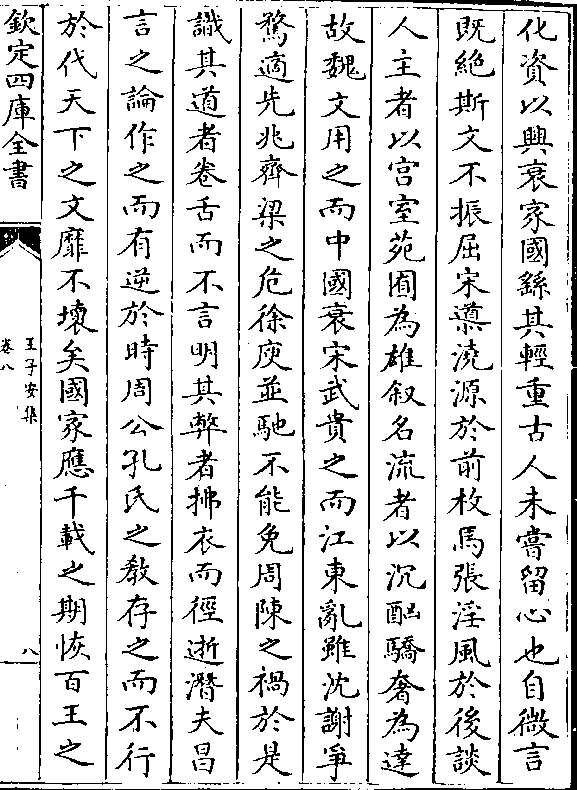 化資以興衰家國繇其輕重古人未嘗留心也自微言
既絕斯文不振屈宋導澆源於前枚馬張淫風於後談
人主者以宫室苑囿為雄叙名流者以沉酗驕奢為達
故魏文用之而中國衰宋武貴之而江東亂雖沈謝爭
騖適先兆齊梁之危徐庾並馳不能免周陳之禍於是
識其道者卷舌而不言明其弊者拂衣而徑逝潛夫昌
言之論作之而有逆於時周公孔氏之教存之而不行
於代天下之文靡不壞矣國家應千載之期恢百王之
欽定四庫全書
王子安集
卷八
八